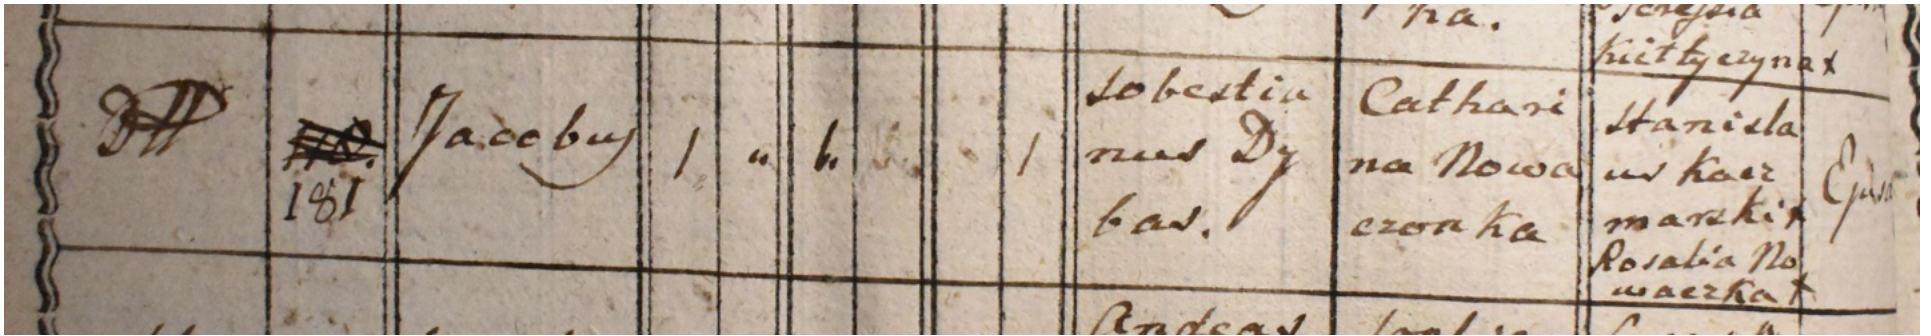 na.
Teressia
Kiełtyczyna x
Dtt
181
Jacobus
1 " h. 1
Sobestia
nus Dy
bas.
Cathari
na Nowa
czonka
Stanisla
us Kacz
marski x
Rosalia No
waczka x
Ejusd
Andreas